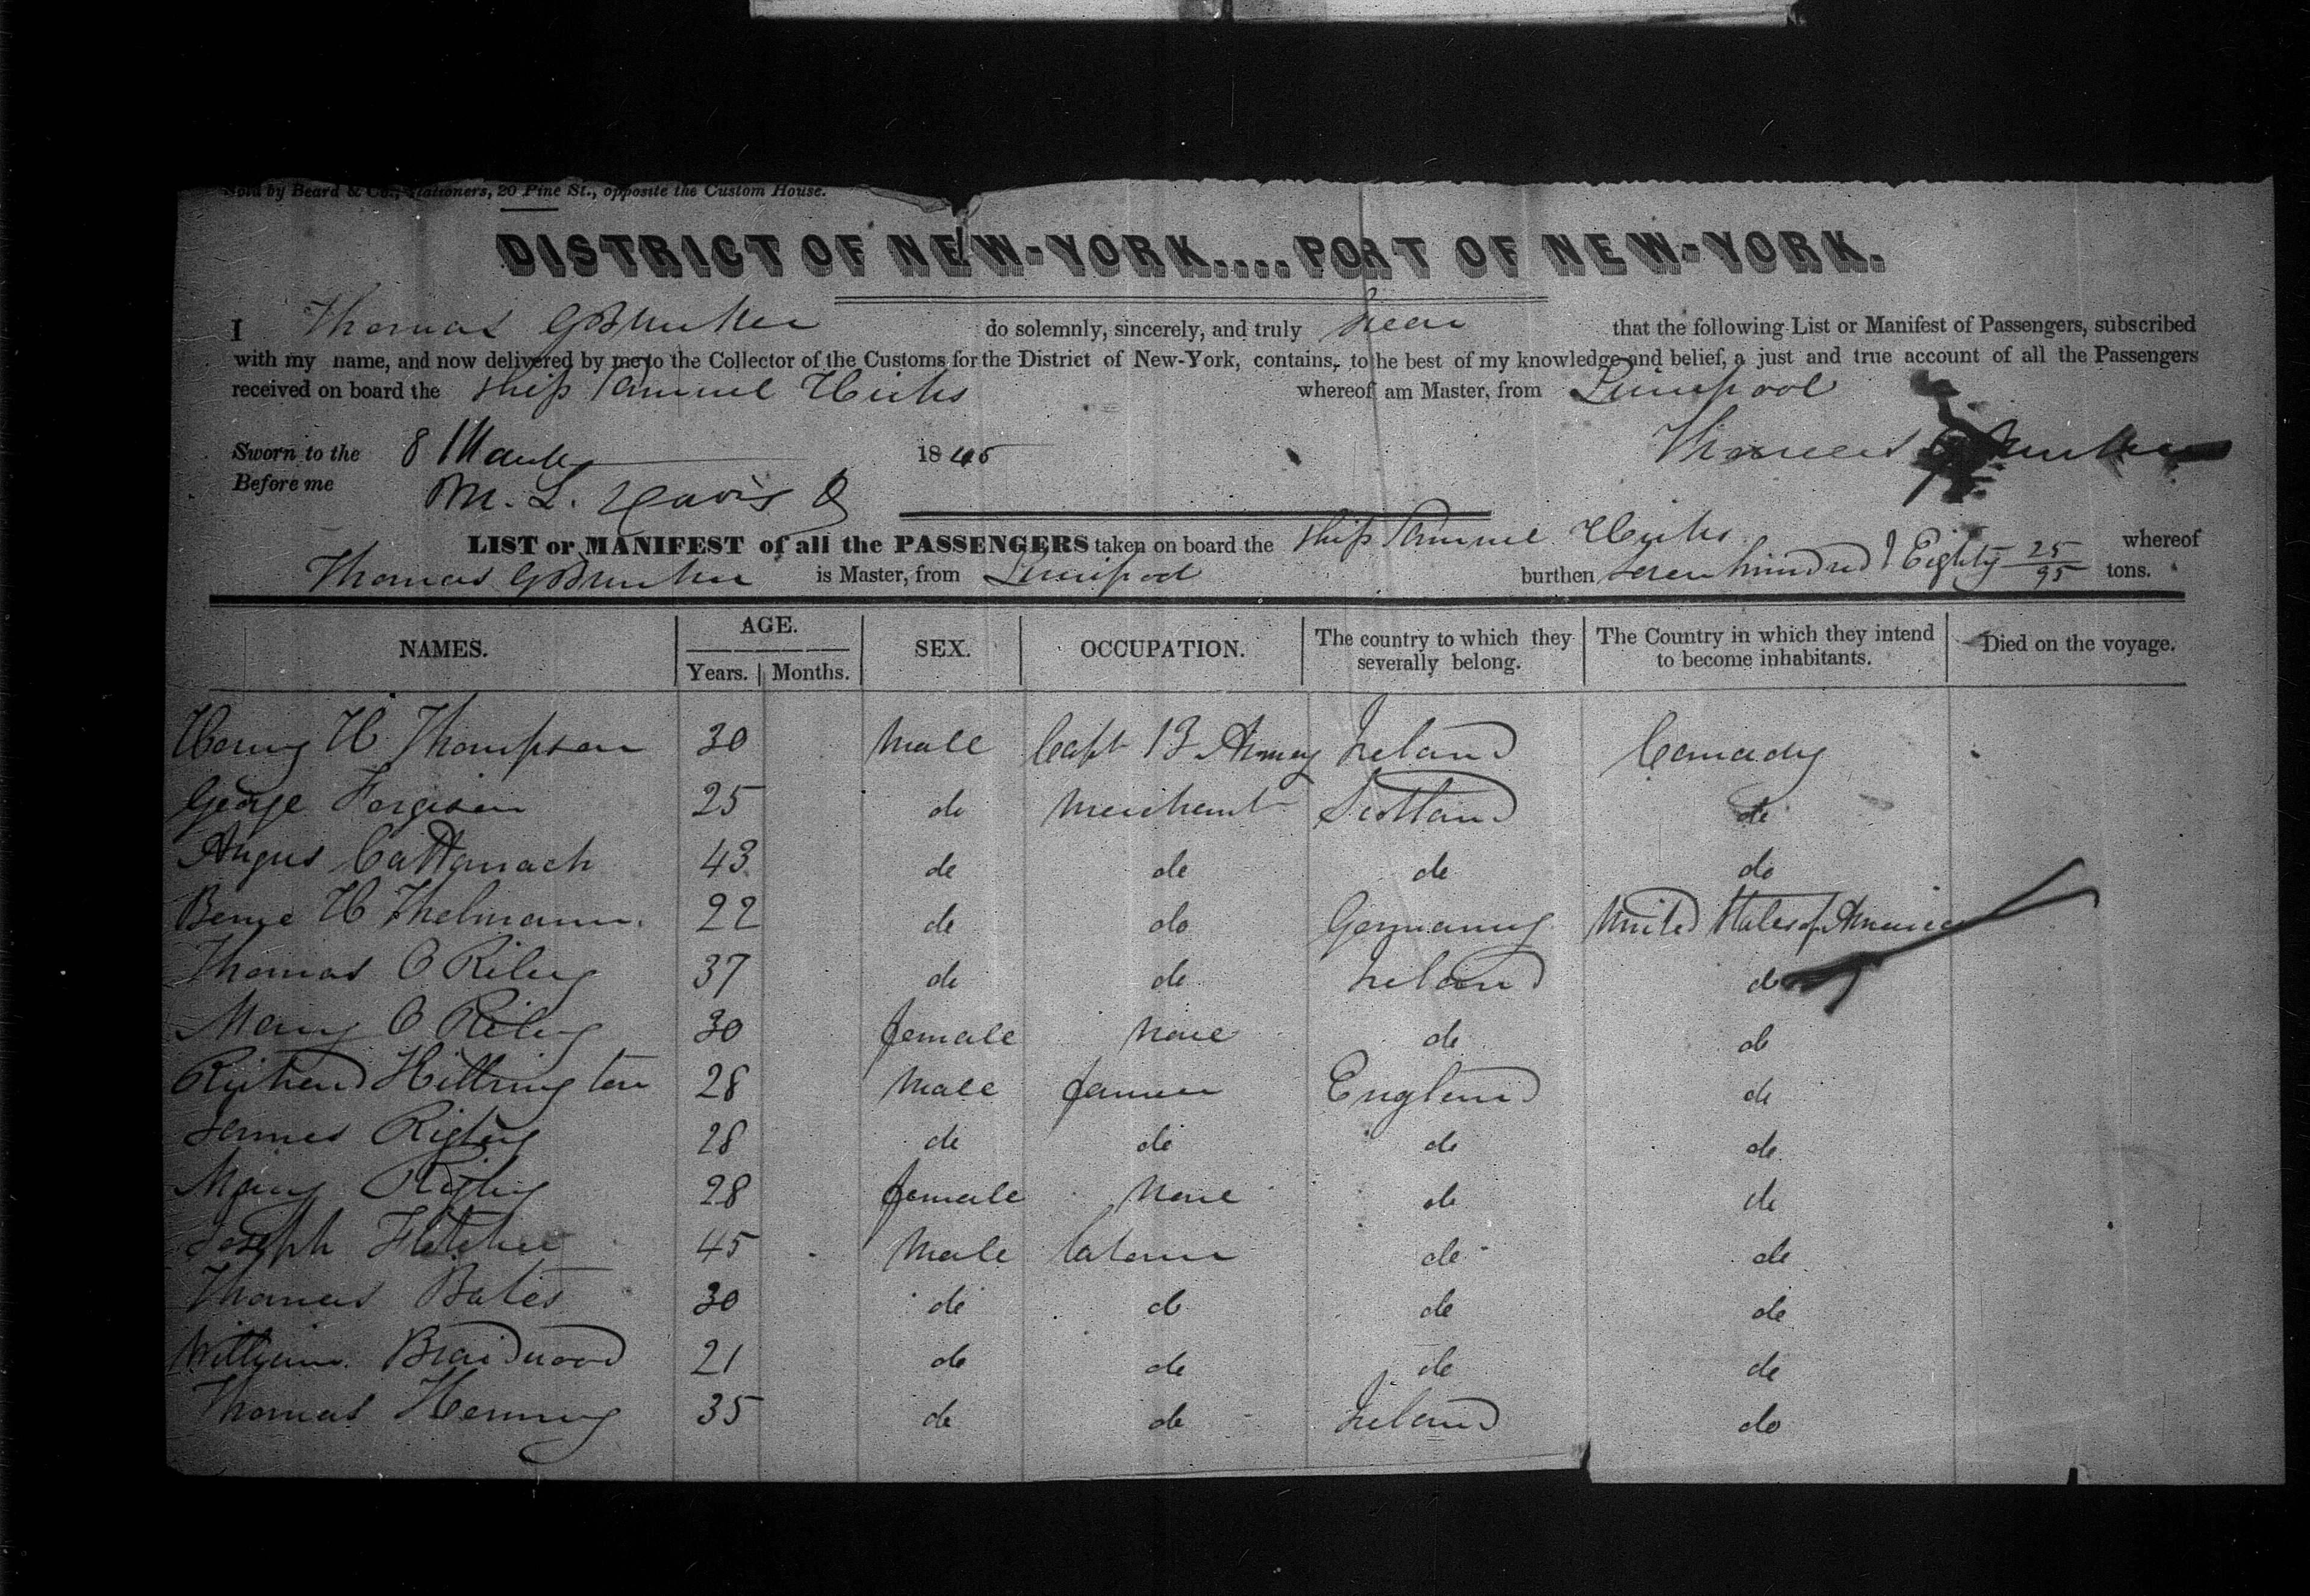 Sold by Beard & Co., Stationers, 20 Pine St., opposite the Custom House.
DISTRICT OF NEW-YORK.... PORT OF NEW-YORK.
I Thomas G Bunker do solemnly, sincerely, and truly swear that the following List or Manifest of Passengers, subscribed
with my name, and now delivered by me to the Collector of the Customs for the District of New-York, contains, to the best of my knowledge and belief, a just and true account of all the Passengers
received on board the Ship Samuel Hicks whereof am Master, from Liverpool
Sworn to the 8 March 1845 Thomas Bunker
Before me M. L. Davis
LIST or MANIFEST of all the PASSENGERS taken on board the Ship Samuel Hicks whereof
Thomas G Bunker is Master, from Liverpool burthen Seven hundred & Eighty 25/95 tons.
NAMES. AGE. Years. Months. SEX. OCCUPATION. The country to which they severally belong. The Country in which they intend to become inhabitants. Died on the voyage.
Henry H Thompson 30 Male Capt B Army Ireland Canady
George Fergison 25 do Merchant Scotland do
Angus Cattanach 43 do do do do
H Thelmann 22 do do Germany United States of America
Thomas O Riley 37 do do Ireland do
Mary O Riley 30 female None do do
Richard Hillrington 28 Male farmer England do
James Rigby 28 do do do do
Mary Rigby 28 female None do do
Joseph Fletcher 45 Male labourer do do
Thomas Bates 30 do do do do
William Braidwood 21 do do do do
Thomas Henning 35 do do Ireland do